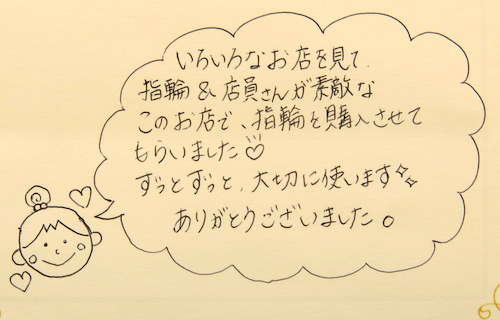 いろいろなお店を見て、
指輪&店員さんが素敵な
このお店で、指輪を購入させて
もらいました♡
ずっとずっと、大切に使います✨
ありがとうございました。